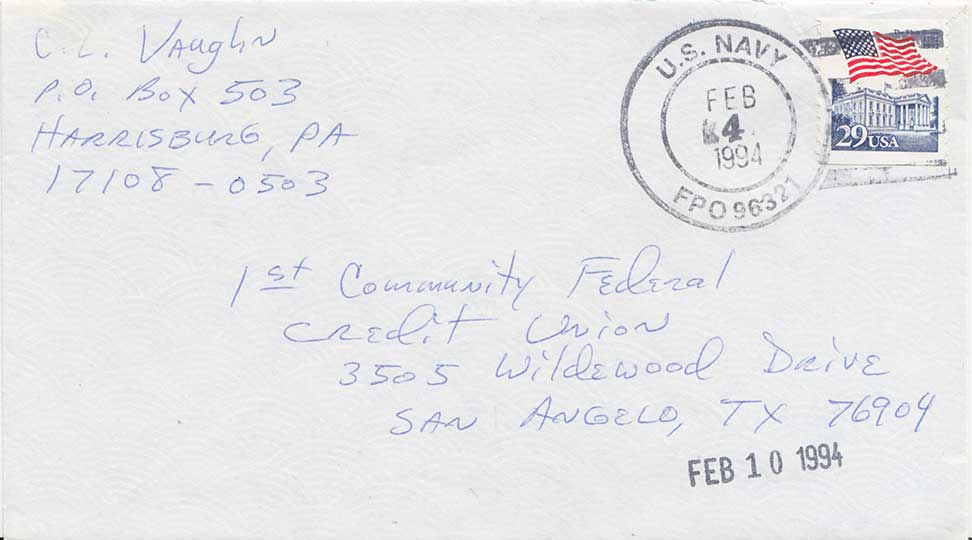 C. L. Vaughn
P.O. Box 503
Harrisburg, PA
17108-0503
U.S. NAVY
FEB
4
1994
FPO 96321
29 USA
1st Community Federal
Credit Union
3505 Wildewood Drive
San Angelo, TX 76904
FEB 10 1994